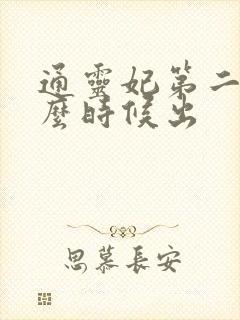 通靈妃第二
麼時候出
思慕長安